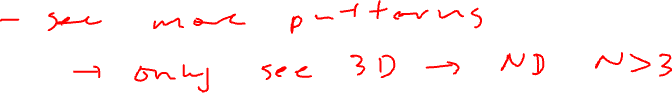 - see more patterns
→ only see 3D → ND N>3